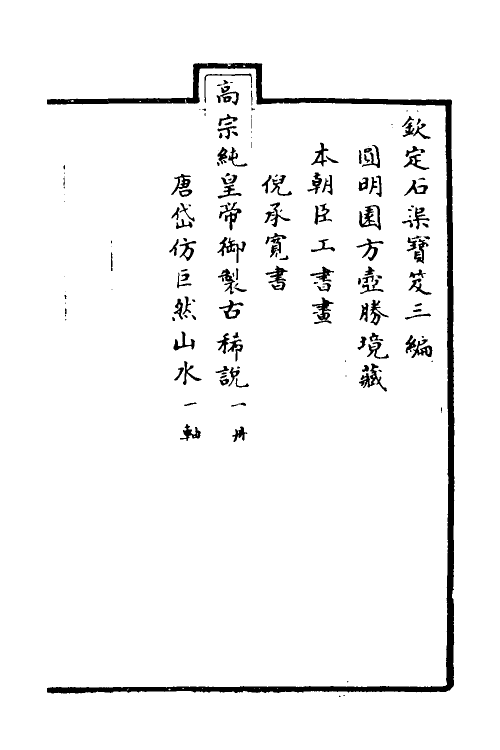 欽定石渠寶笈三編
圓明園方壺勝境藏
本朝臣工書畫
倪承寛書
高宗純皇帝御製古稀說一冊
唐岱仿巨然山水一軸